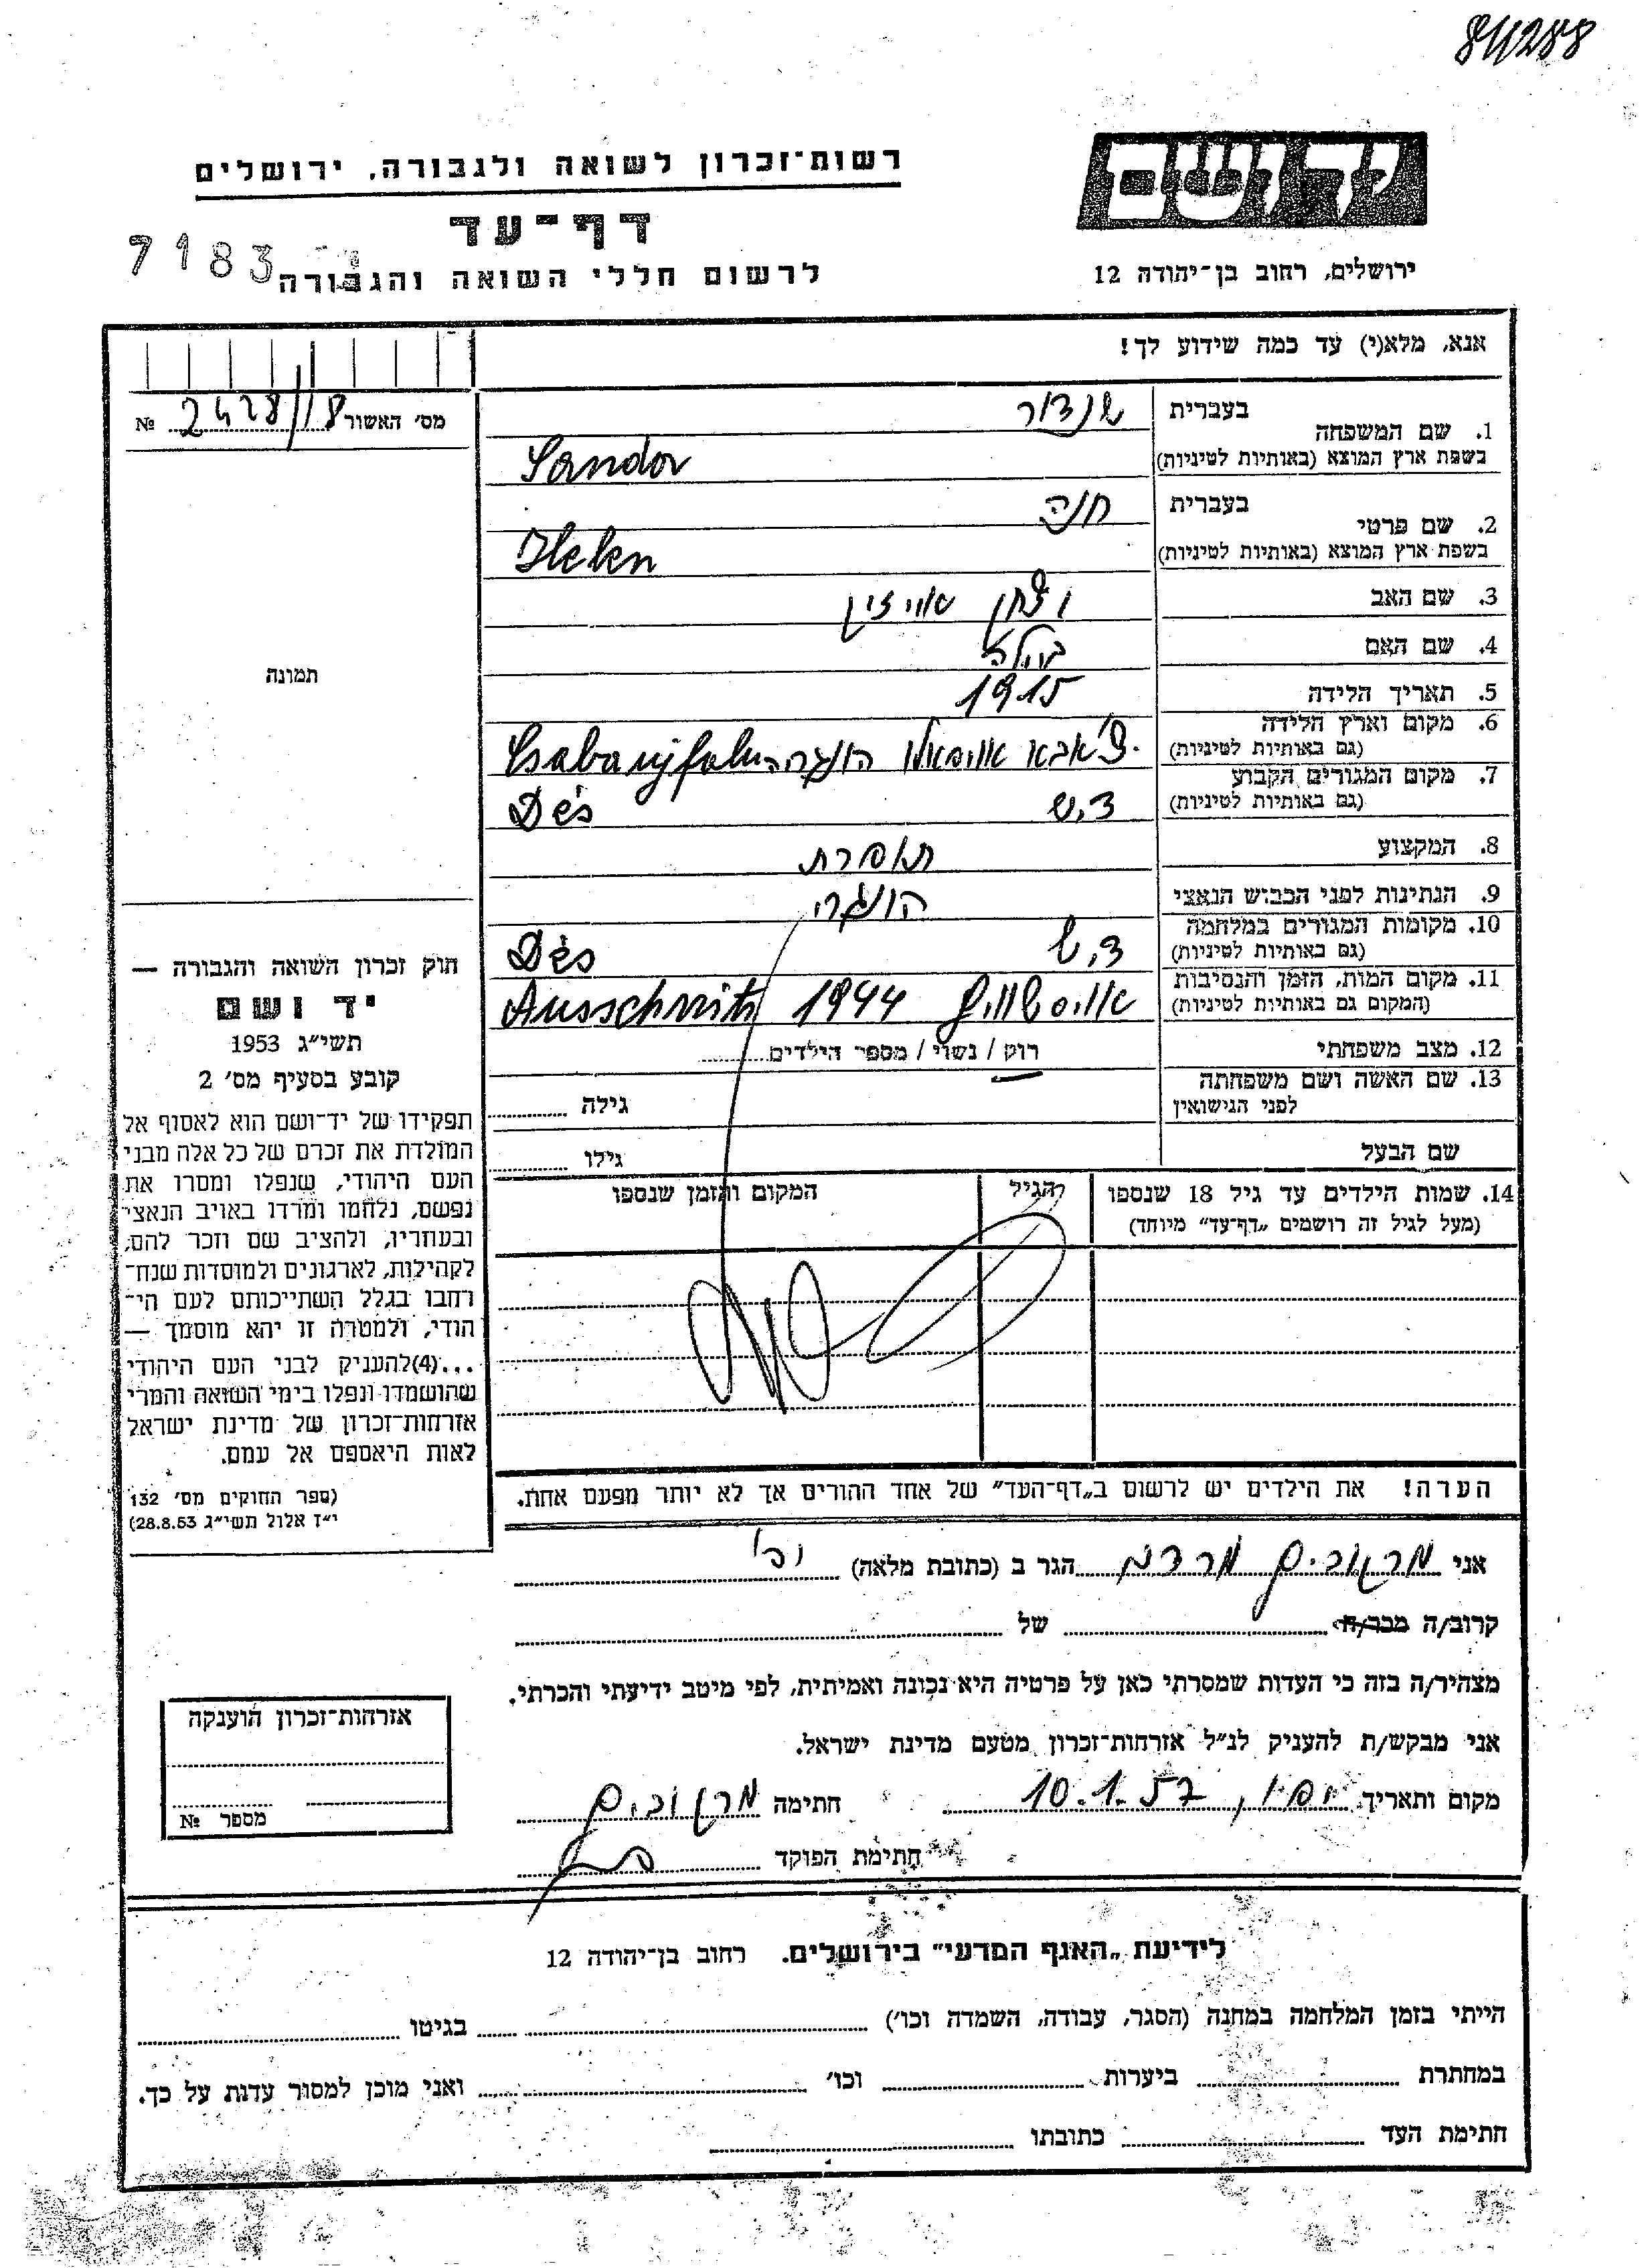 811288
יד ושם
רשות־זכרון לשואה ולגבורה, ירושלים
דף־עד
7183
לרשום חללי השואה והגבורה
ירושלים, רחוב בן־יהודה 12
אנא, מלא(י) עד כמה שידוע לך!
מס׳ האשור № 2428/18
1. שם המשפחה בעברית שנדור
בשפת ארץ המוצא (באותיות לטיניות) Sandor
2. שם פרטי בעברית חנה
בשפת ארץ המוצא (באותיות לטיניות) Helen
3. שם האב
4. שם האם
5. תאריך הלידה 1915
6. מקום וארץ הלידה
(גם באותיות לטיניות) צ׳אבא אויפאלו הונגריה Csabaujfalu
7. מקום המגורים הקבוע
(גם באותיות לטיניות) דיש Dés
8. המקצוע תופרת
9. הנתינות לפני הכבוש הנאצי הונגריה
10. מקומות המגורים במלחמה
(גם באותיות לטיניות) דיש Dés
11. מקום המות, הזמן והנסיבות
(המקום גם באותיות לטיניות) אוישוויץ 1944 Ausschwitz
12. מצב משפחתי רוק / נשוי / מספר הילדים
13. שם האשה ושם משפחתה
לפני הנישואין גילה
שם הבעל גילו
14. שמות הילדים עד גיל 18 שנספו הגיל המקום והזמן שנספו
(מעל לגיל זה רושמים „דף־עד” מיוחד)
הערה! את הילדים יש לרשום ב„דף־העד” של אחד ההורים אך לא יותר מפעם אחת.
תמונה
חוק זכרון השואה והגבורה —
יד ושם
תשי״ג 1953
קובע בסעיף מס׳ 2
תפקידו של יד־ושם הוא לאסוף אל
המולדת את זכרם של כל אלה מבני
העם היהודי, שנפלו ומסרו את
נפשם, נלחמו ומרדו באויב הנאצי
ובעוזריו, ולהציב שם וזכר להם,
לקהילות, לארגונים ולמוסדות שנח־
רחבו בגלל השתייכותם לעם הי־
הודי, ולמטרה זו יהא מוסמך —
...(4)להעניק לבני העם היהודי
שהושמדו ונפלו בימי השואה והמרי
אזרחות־זכרון של מדינת ישראל
לאות היאספם אל עמם.
(ספר החוקים מס׳ 132
י״ז אלול תשי״ג 28.8.53)
אני מרקוביץ הגר ב (כתובת מלאה) וכו׳
קרוב/ה מכר/ה של
מצהיר/ה בזה כי העדות שמסרתי כאן על פרטיה היא נכונה ואמיתית, לפי מיטב ידיעתי והכרתי.
אני מבקש/ת להעניק לנ״ל אזרחות־זכרון מטעם מדינת ישראל.
מקום ותאריך יפו, 10.1.57 חתימה מרקוביץ
חתימת הפוקד
אזרחות־זכרון הוענקה
מספר №
לידיעת „האגף המדעי” בירושלים. רחוב בן־יהודה 12
הייתי בזמן המלחמה במחנה (הסגר, עבודה, השמדה וכו׳) בגיטו
במחתרת ביערות וכו׳ ואני מוכן למסור עדות על כך.
חתימת העד כתובתו